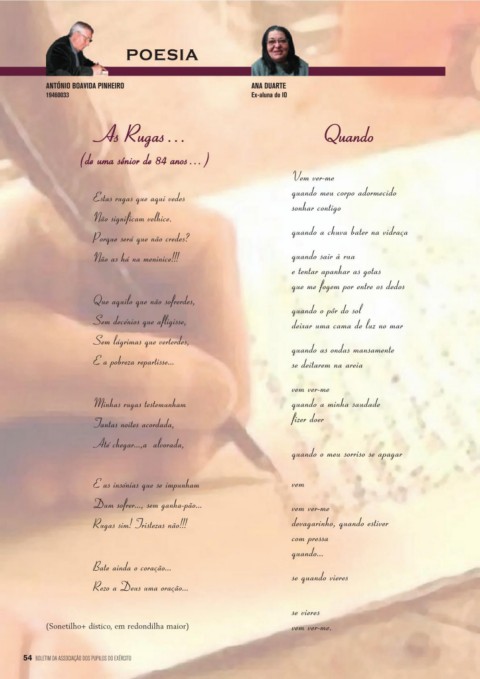 POESIA
ANTÓNIO BOAVIDA PINHEIRO
19460033
ANA DUARTE
Ex-aluna do IO
As Rugas...
(de uma sénior de 84 anos...)
Estas rugas que aqui vedes
Não significam velhice.
Porque será que não credes?
Não as há na meninice!!!
Que aquilo que não sofredes,
Sem decénios que afligisse,
Sem lágrimas que verterdes,
E a pobreza repartisse...
Minhas rugas testemunham
Tantas noites acordada,
Até chegar...,a alvorada,
E as insónias que se impunham
Dum sofrer..., sem ganha-pão...
Rugas sim! Tristezas não!!!
Bate ainda o coração...
Rezo a Deus uma oração...
(Sonetilho+ dístico, em redondilha maior)
Quando
Vem ver-me
quando meu corpo adormecido
sonhar contigo
quando a chuva bater na vidraça
quando sair à rua
e tentar apanhar as gotas
que me fogem por entre os dedos
quando o pôr do sol
deixar uma cama de luz no mar
quando as ondas mansamente
se deitarem na areia
vem ver-me
quando a minha saudade
fizer doer
quando o meu sorriso se apagar
vem
vem ver-me
devagarinho, quando estiver
com pressa
quando...
se quando vieres
se vieres
vem ver-me.
54 BOLETIM DA ASSOCIAÇÃO DOS PUPILOS DO EXÉRCITO